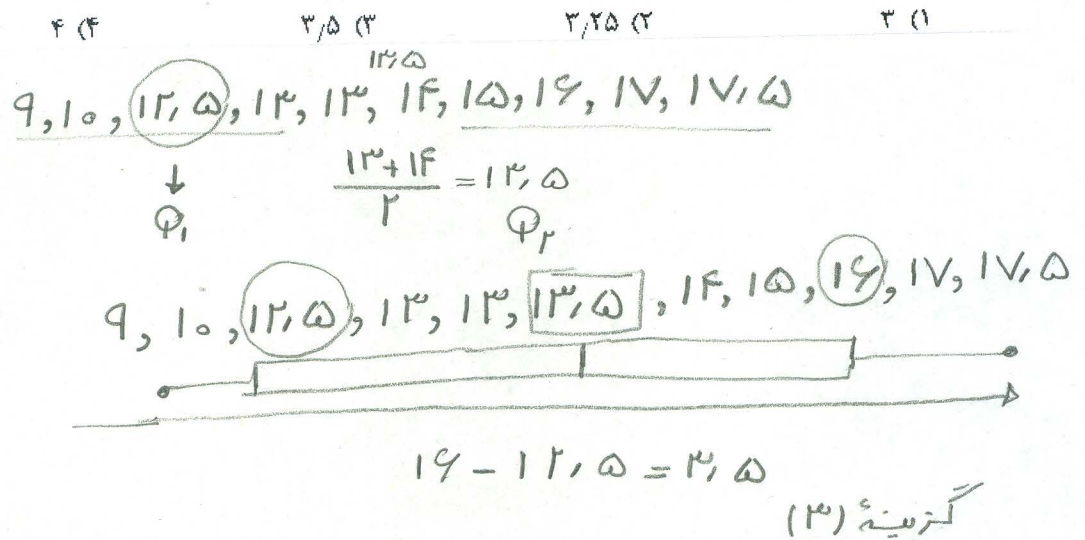 ۱) ۳ ۲) ۳٫۲۵ ۳) ۳٫۵ ۴) ۴
۱۳٫۵
۹, ۱۰, ۱۲٫۵, ۱۳, ۱۳, ۱۴, ۱۵, ۱۶, ۱۷, ۱۷٫۵
↓
(۱۳+۱۴)/۲ = ۱۳٫۵
Q۱ Q۲
۹, ۱۰, ۱۲٫۵, ۱۳, ۱۳, ۱۳٫۵, ۱۴, ۱۵, ۱۶, ۱۷, ۱۷٫۵
۱۶ - ۱۲٫۵ = ۳٫۵
گزینهٔ (۳)